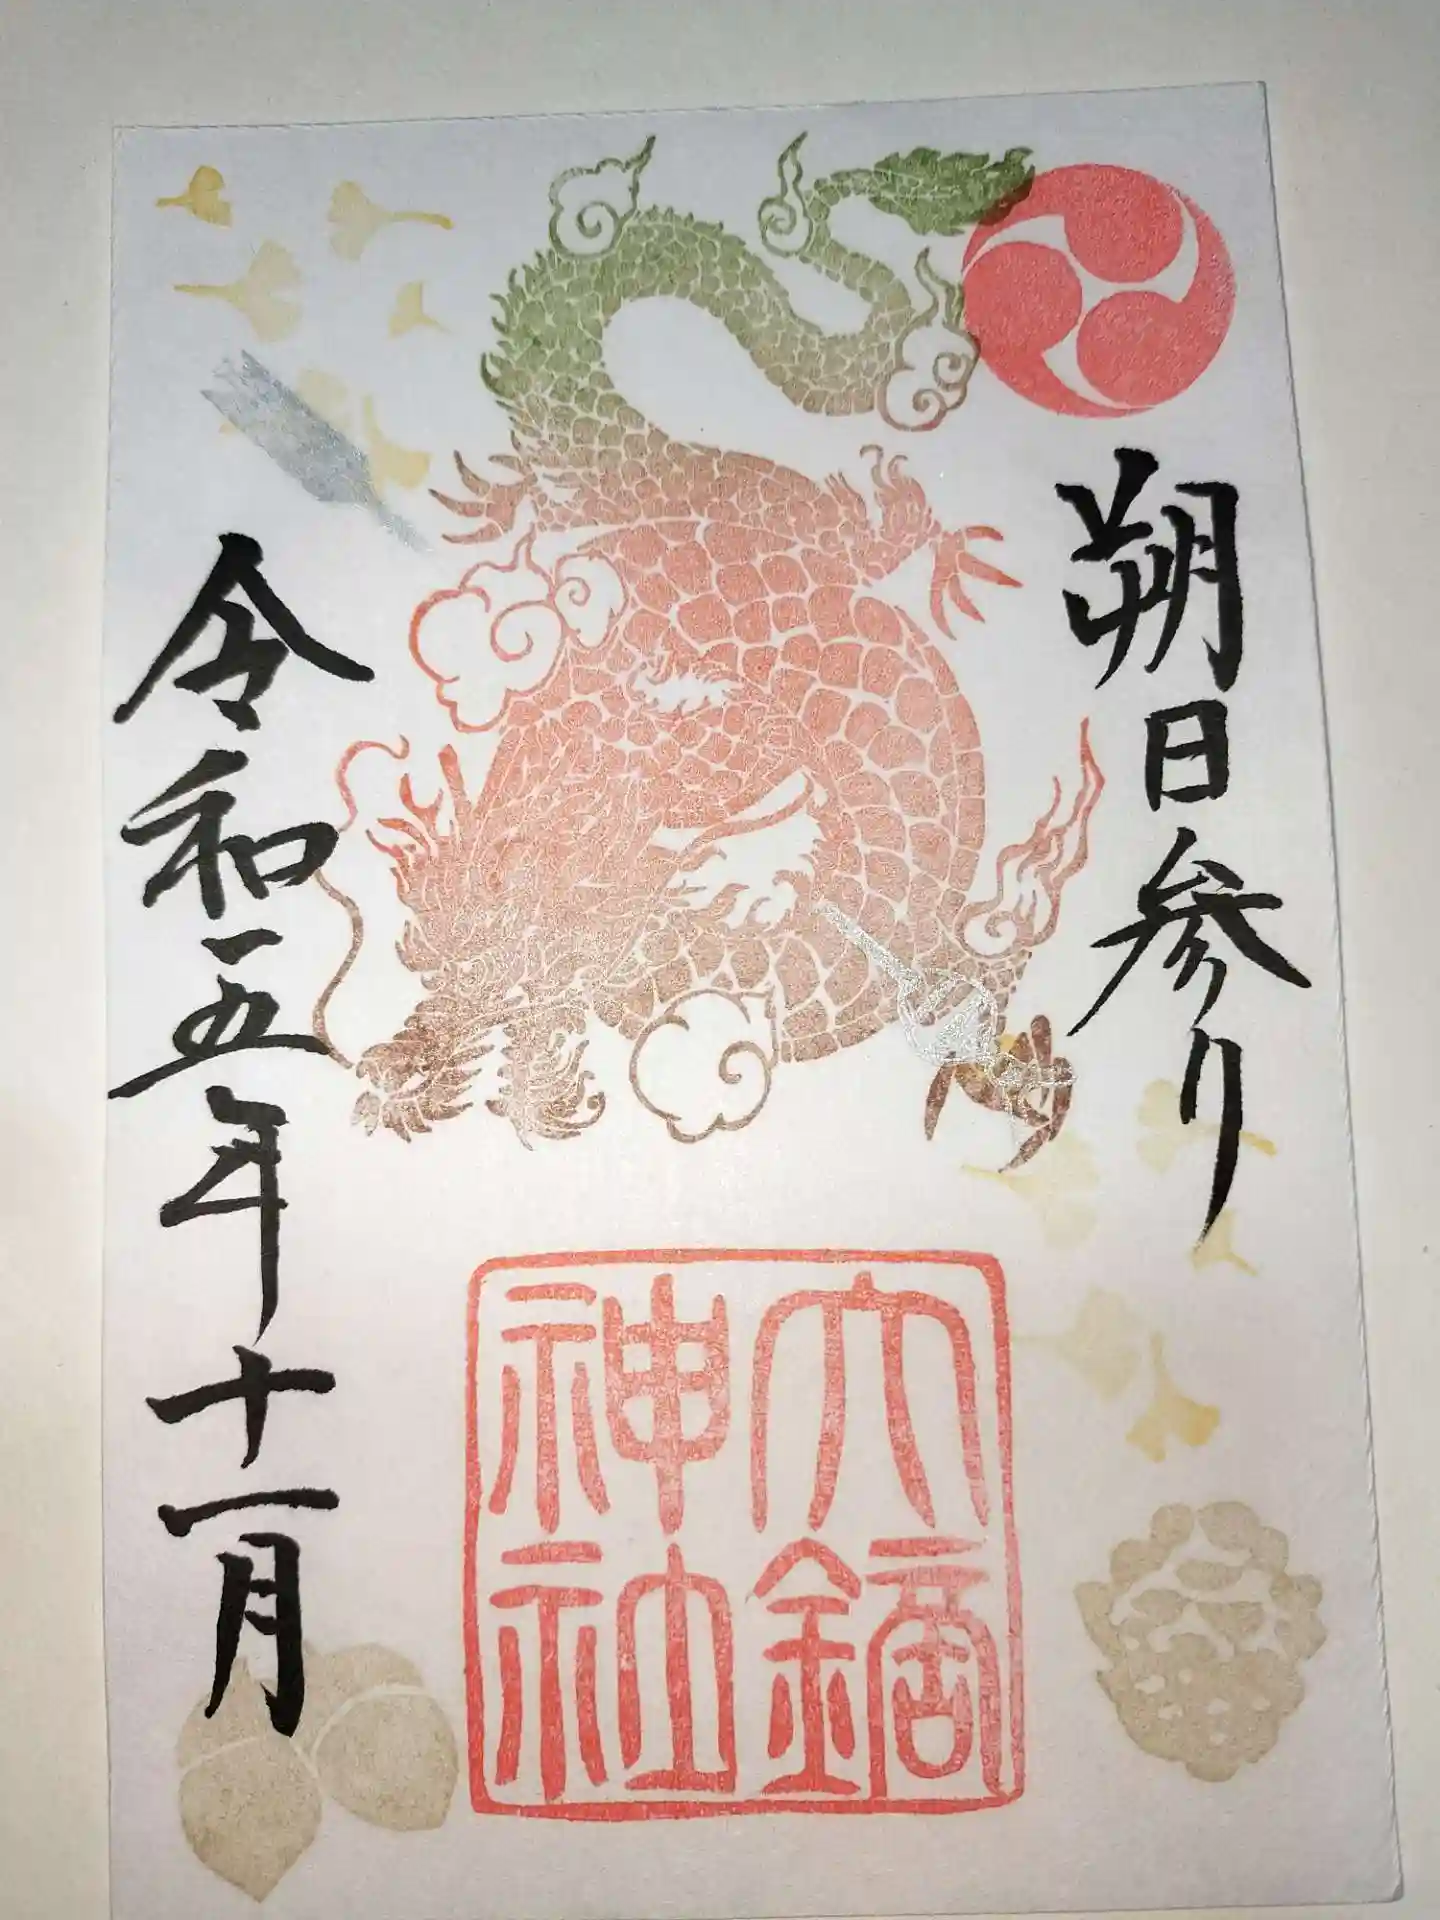 朔日参り
大鏑
神社
令和五年十一月